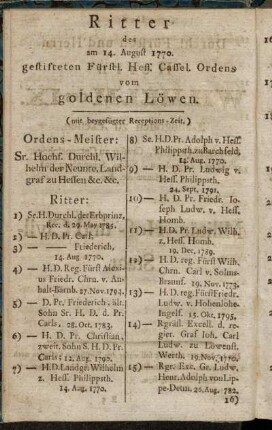 Ritter
des
am 14. August 1770.
gestifteten Fürstl. Hess. Cassel. Ordens
vom
goldenen Löwen.
(mit beygefügter Receptions-Zeit.)
Ordens-Meister:
Sr. Hochf. Durchl. Wil-
helm der Neunte, Land-
graf zu Hessen &c. &c.
Ritter:
1) Sr. H. Durchl. der Erbprinz,
Rec. d. 29. May 1785.
2) — H. D. Pr. Carl,
3) — Friederich,
14. Aug. 1770.
4) — H. D. Reg. Fürst Alexi-
us Friedr. Chrn. v. An-
halt-Bärnb. 17. Nov. 1794.
5) — D. Pr. Friederich, ält.
Sohn Sr. H. D. d. Pr.
Carls, 28. Oct. 1783.
6) — H. D. Pr. Christian,
zweit. Sohn S. H. D. Pr.
Carls; 12. Aug. 1790.
7) — H. D. Landgr. Wilhelm
z. Hess. Philippsth.
14. Aug. 1770.
8) Se. H. D. Pr. Adolph v. Hess.
Philippsth. zu Barchfeld,
14. Aug. 1770.
9) — H. D. Pr. Ludwig v.
Hess. Philippsth.
24. Sept. 1791.
10) — H. D. Pr. Friedr. Jo-
seph Ludw. v. Hess.
Homb.
11) — H. D. Pr. Ludw. Wilh.
z. Hess. Homb.
19. Dec. 1789.
12) — H. D. reg. Fürst Wilh.
Chrn. Carl v. Solms-
Braunf. 19. Nov. 1773.
13) — H. D. reg. Fürst Friedr.
Ludw. v. Hohenlohe-
Ingelf. 15. Okt. 1795.
14) — Rgräfl. Excell. d. re-
gier. Graf Joh. Carl
Ludw. zu Löwenst.
Werth. 19. Nov. 1770.
15) — Rgr. Exc. Gr. Ludw.
Henr. Adolph von Lip-
pe-Detm. 26. Aug. 1782.
16)